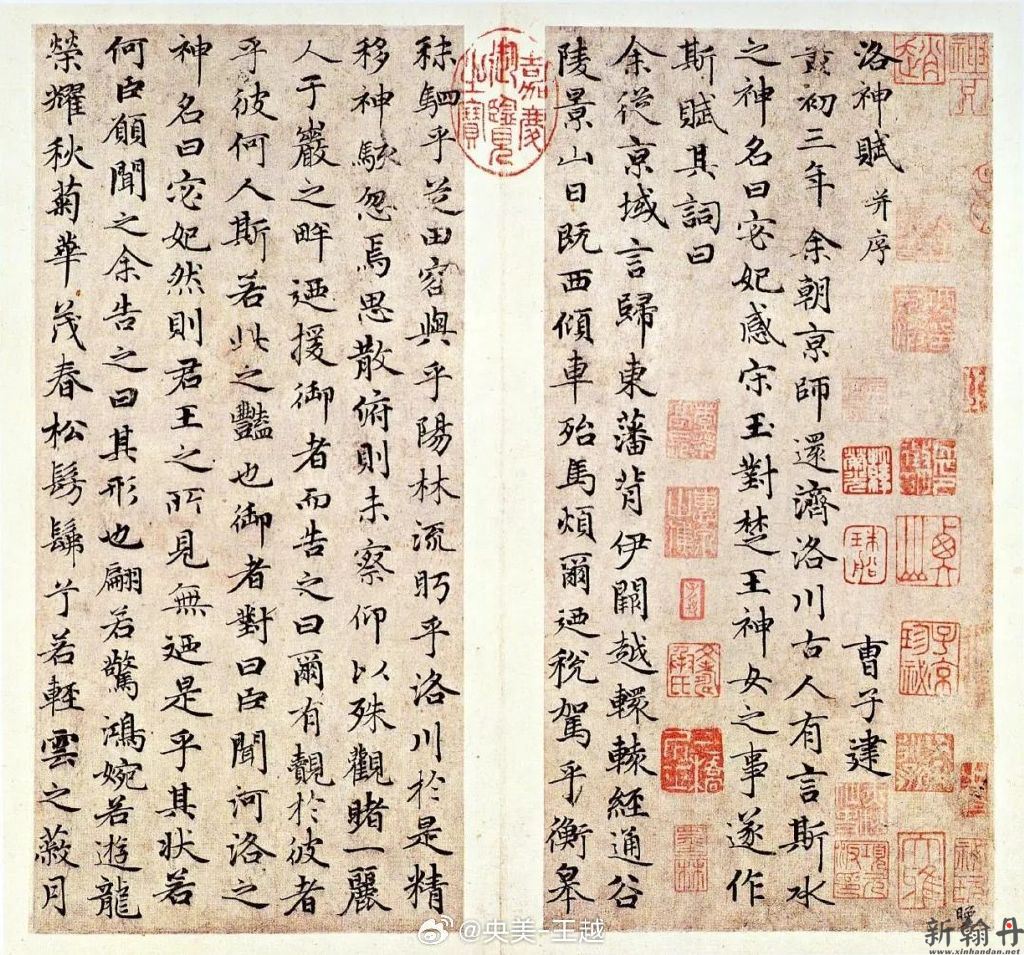 洛神賦 并序 曹子建
黃初三年余朝京師還濟洛川古人有言斯水
之神名曰宓妃感宋玉對楚王神女之事遂作
斯賦其詞曰
余從京域言歸東藩背伊闕越轘轅經通谷
陵景山日既西傾車殆馬煩爾迺稅駕乎衡皋
秣駟乎芝田容與乎陽林流眄乎洛川於是精
移神駭忽焉思散俯則未察仰以殊觀睹一麗
人于巖之畔迺援御者而告之曰爾有覿於彼者
乎彼何人斯若此之豔也御者對曰臣聞河洛之
神名曰宓妃然則君王之所見無迺是乎其狀若
何臣願聞之余告之曰其形也翩若驚鴻婉若遊龍
榮耀秋菊華茂春松髣髴兮若輕雲之蔽月
嘉慶御覽之寶
子京珍祕
大雅
@央美-王越
新翰丹
www.xinhandan.net